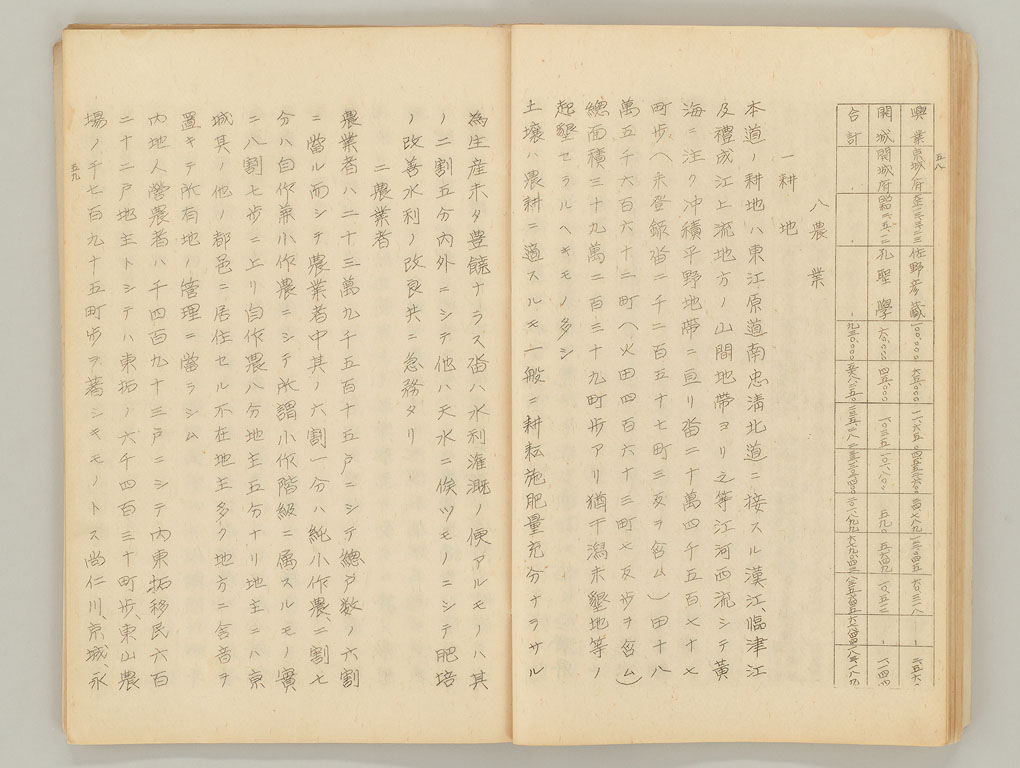 五八
興業 京城府 佐野彦蔵
開城 開城府 孔聖學
合計
八農業
一耕地
本道ノ耕地ハ東江原道南忠淸北道ニ接スル漢江、臨津江
及禮成江上流地方ノ山間地帶ヨリ之等江河西流シテ黃
海ニ注ク冲積平野地帶ニ亘リ畓二十萬四千五百七十七
町步(未登錄畓二千二百五十七町三反ヲ含ム)田十八
萬五千六百六十二町(火田四百六十三町七反步ヲ含ム)
總面積三十九萬二百三十九町步アリ猶干潟未墾地等ノ
起墾セラルヘキモノ多シ
土壤ハ農耕ニ適スルモ一般ニ耕耘施肥量充分ナラサル
為生産未タ豊饒ナラス畓ハ水利灌漑ノ便アルモノハ其
ノ二割五分內外ニシテ他ハ天水ニ俟ツモノニシテ肥培
ノ改善水利ノ改良共ニ急務タリ
二農業者
農業者ハ二十三萬九千五百十五戶ニシテ總戶数ノ六割
ニ當ル而シテ農業者中其ノ六割一分ハ純小作農、二割七
分ハ自作兼小作農ニシテ所謂小作階級ニ属スルモノ實
ニ八割七步ニ上リ自作農八分地主五分ナリ地主ニハ京
城其ノ他ノ都邑ニ居住セル不在地主多ク地方ニ舍音ヲ
置キテ所有地ノ管理ニ當ラシム
內地人營農者ハ千四百九十三戶ニシテ內東拓移民六百
二十二戶地主トシテハ東拓ノ六千四百三十町步、東山農
場ノ千七百九十五町步ヲ著シキモノトス尚仁川、京城、永
五九